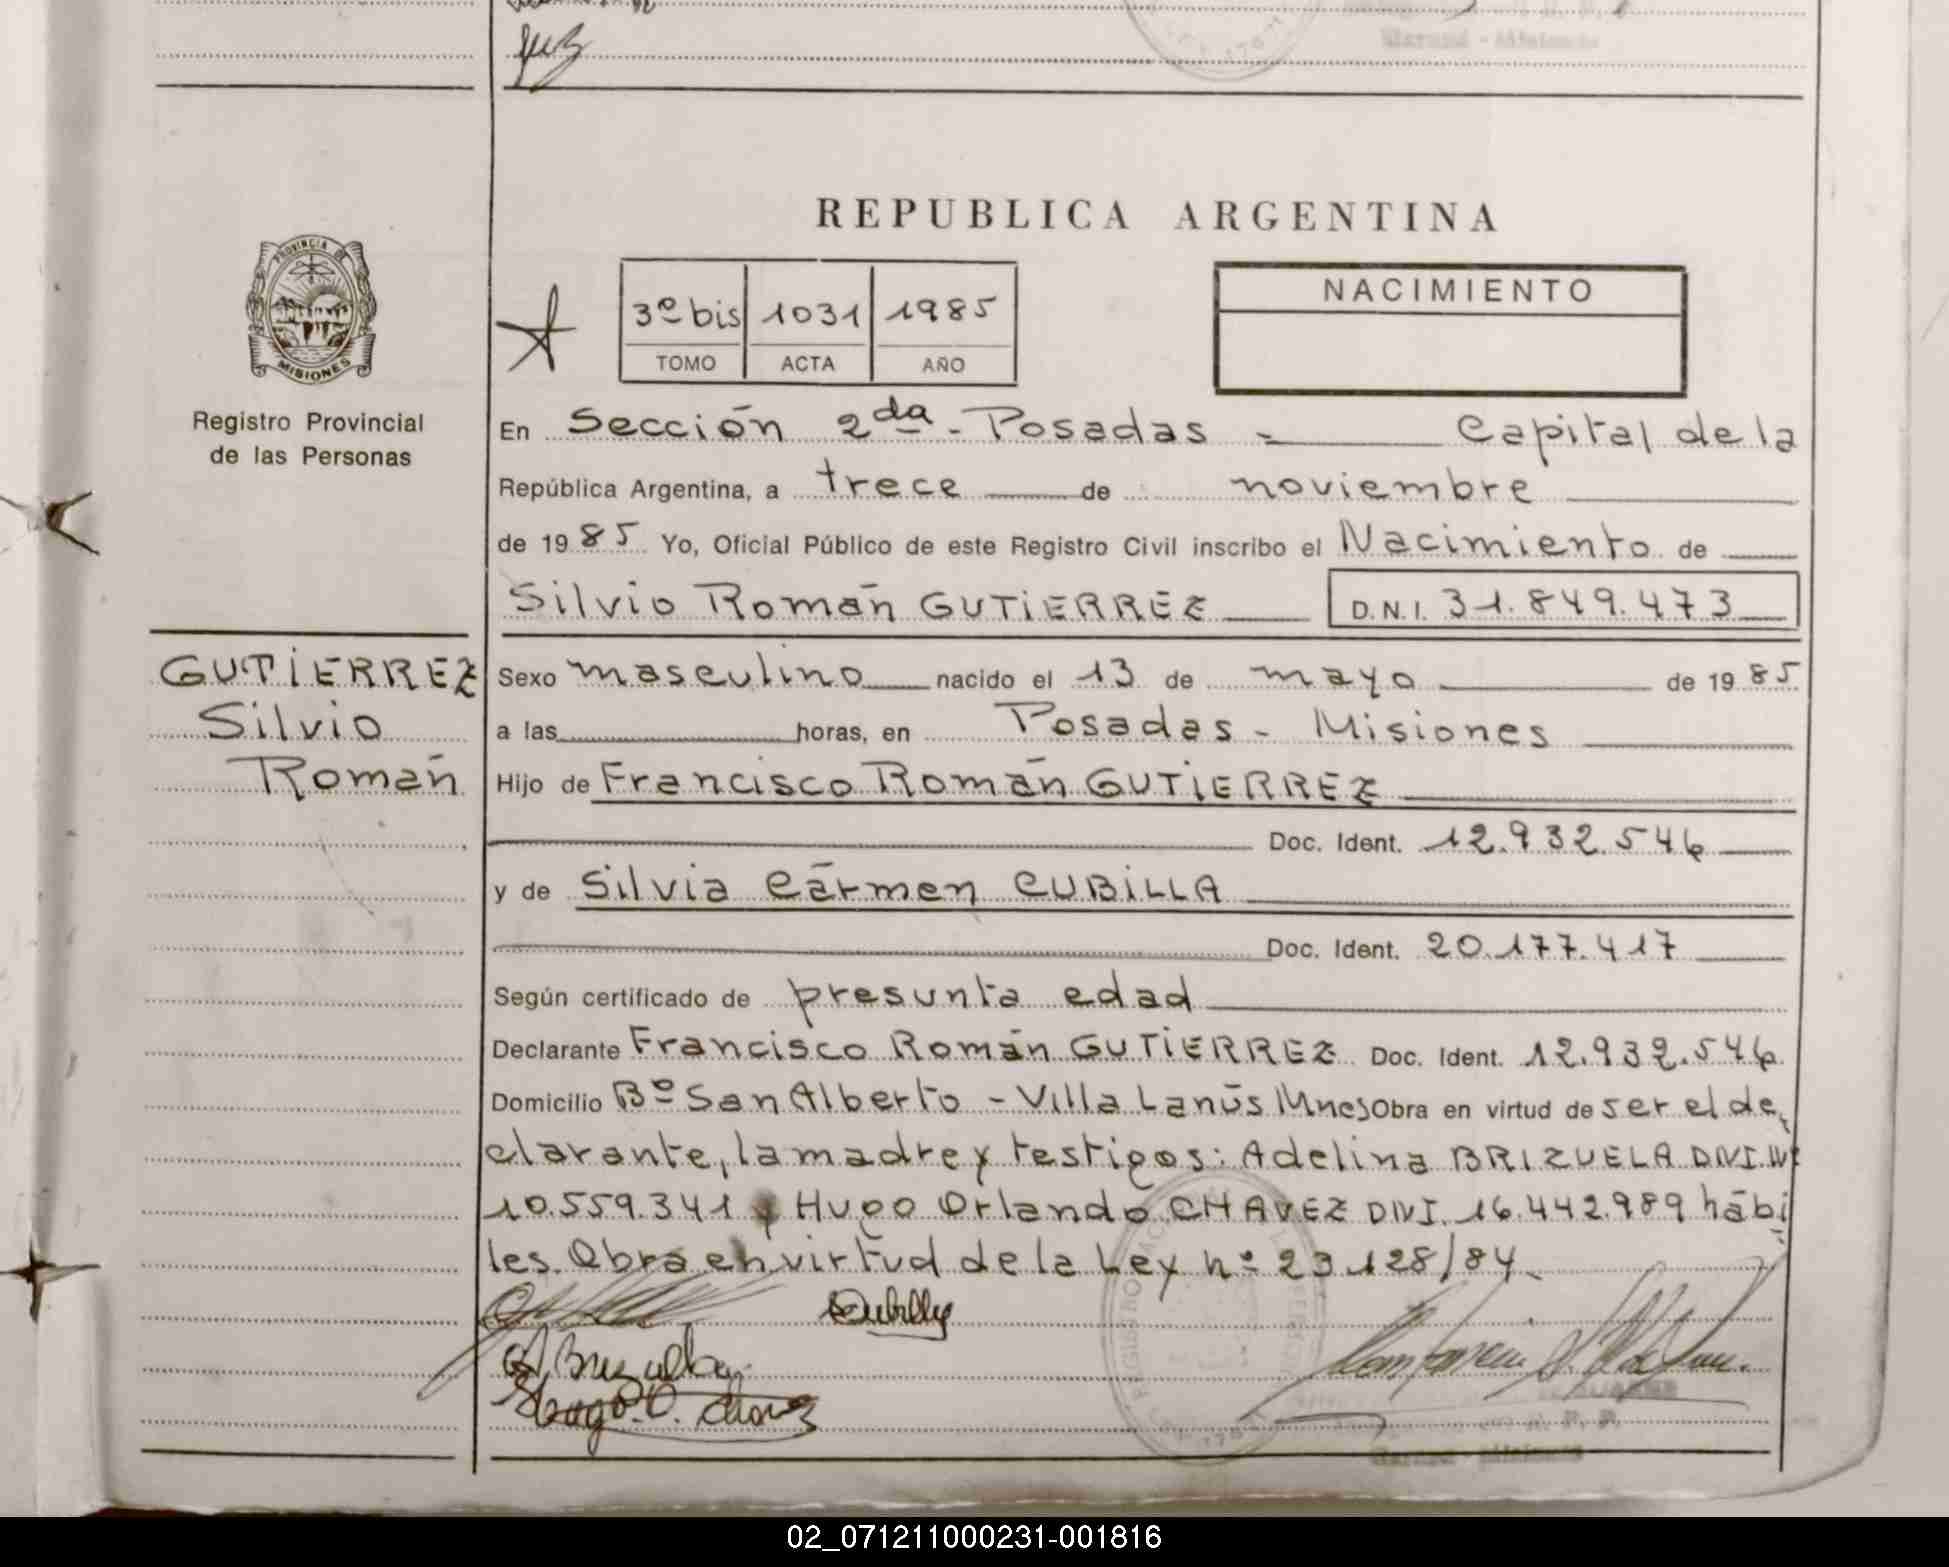 REPUBLICA ARGENTINA
PROVINCIA DE
MISIONES
Registro Provincial
de las Personas
3º bis 1031 1985
TOMO ACTA AÑO
NACIMIENTO
En Sección 2da - Posadas - Capital de la
República Argentina, a trece de noviembre
de 1985 Yo, Oficial Público de este Registro Civil inscribo el Nacimiento de
Silvio Román GUTIERREZ D.N.I. 31.849.473
GUTIERREZ
Silvio
Román
Sexo masculino nacido el 13 de mayo de 1985
a las horas, en Posadas - Misiones
Hijo de Francisco Román GUTIERREZ
Doc. Ident. 12.932.546
y de Silvia Cármen CUBILLA
Doc. Ident. 20.177.417
Según certificado de presunta edad
Declarante Francisco Román GUTIERREZ Doc. Ident. 12.932.546
Domicilio Bº San Alberto - Villa Lanús Mnes Obra en virtud de ser el de
clarante, la madre y testigos: Adelina BRIZUELA DNI. Nº
10.559.341 y Hugo Orlando CHAVEZ DNI. 16.442.989 hábi
les. Obra en virtud de la Ley nº 23.128/84.
Cubilla
A. Brizuela
Hugo O. Chavez
02_071211000231-001816